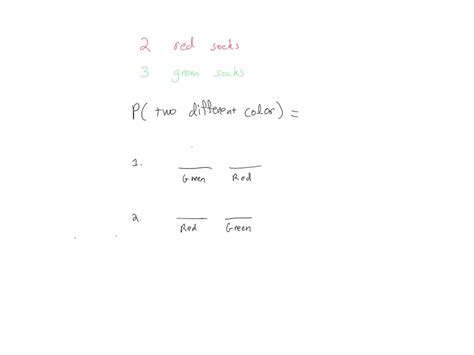 2 red socks
3 green socks
P( two different color) =
1. Green Red
2. Red Green